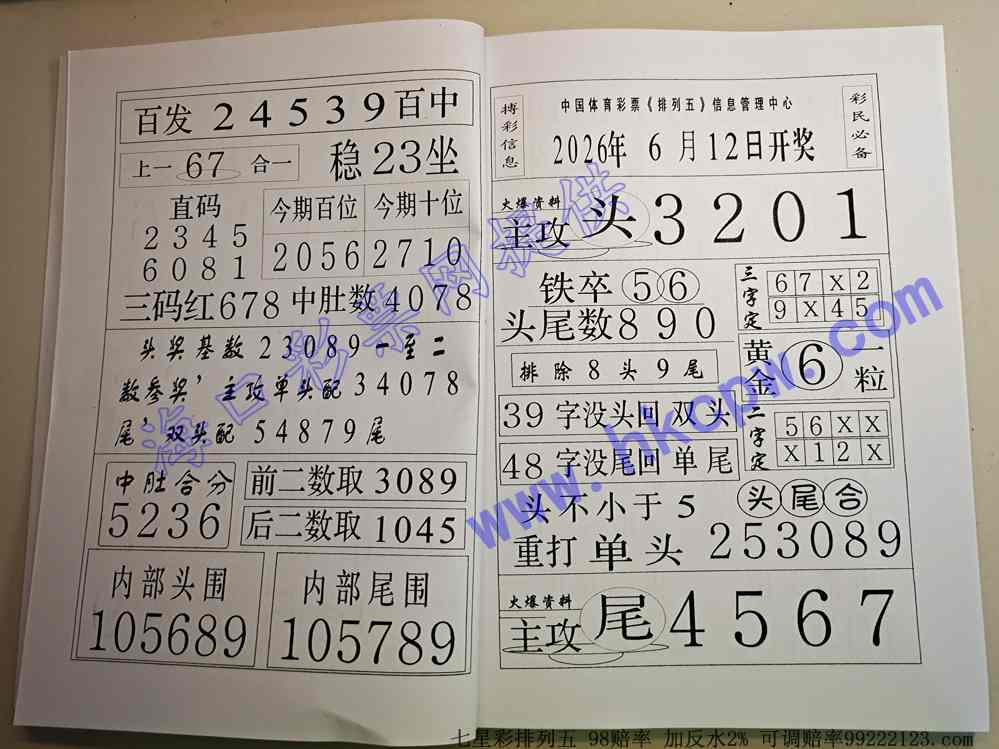 百发 24539 百中
上一 67 合一 稳 23 坐
直码
2345
6081
今期百位 今期十位
2056 2710
三码红 678 中肚数 4078
头奖基数 23089 一至二
数参奖，主攻单头配 34078
尾，双头配 54879 尾
中肚合分
5236
前二数取 3089
后二数取 1045
内部头围
105689
内部尾围
105789
搏彩信息
中国体育彩票《排列五》信息管理中心
2026年 6 月 12日开奖
彩民必备
火爆资料
主攻 头 3201
铁卒 56
头尾数 890
排除 8 头 9 尾
三字定
67X2
9X45
黄金 6 一粒
39 字没头回 双头
48 字没尾回 单尾
二字定
56XX
X12X
头不小于 5
头尾合
重打 单头 253089
火爆资料
主攻 尾 4567
海口彩票网提供
www.hkcpw.com
七星彩排列五 98赔率 加反水2% 可调赔率99222123.com